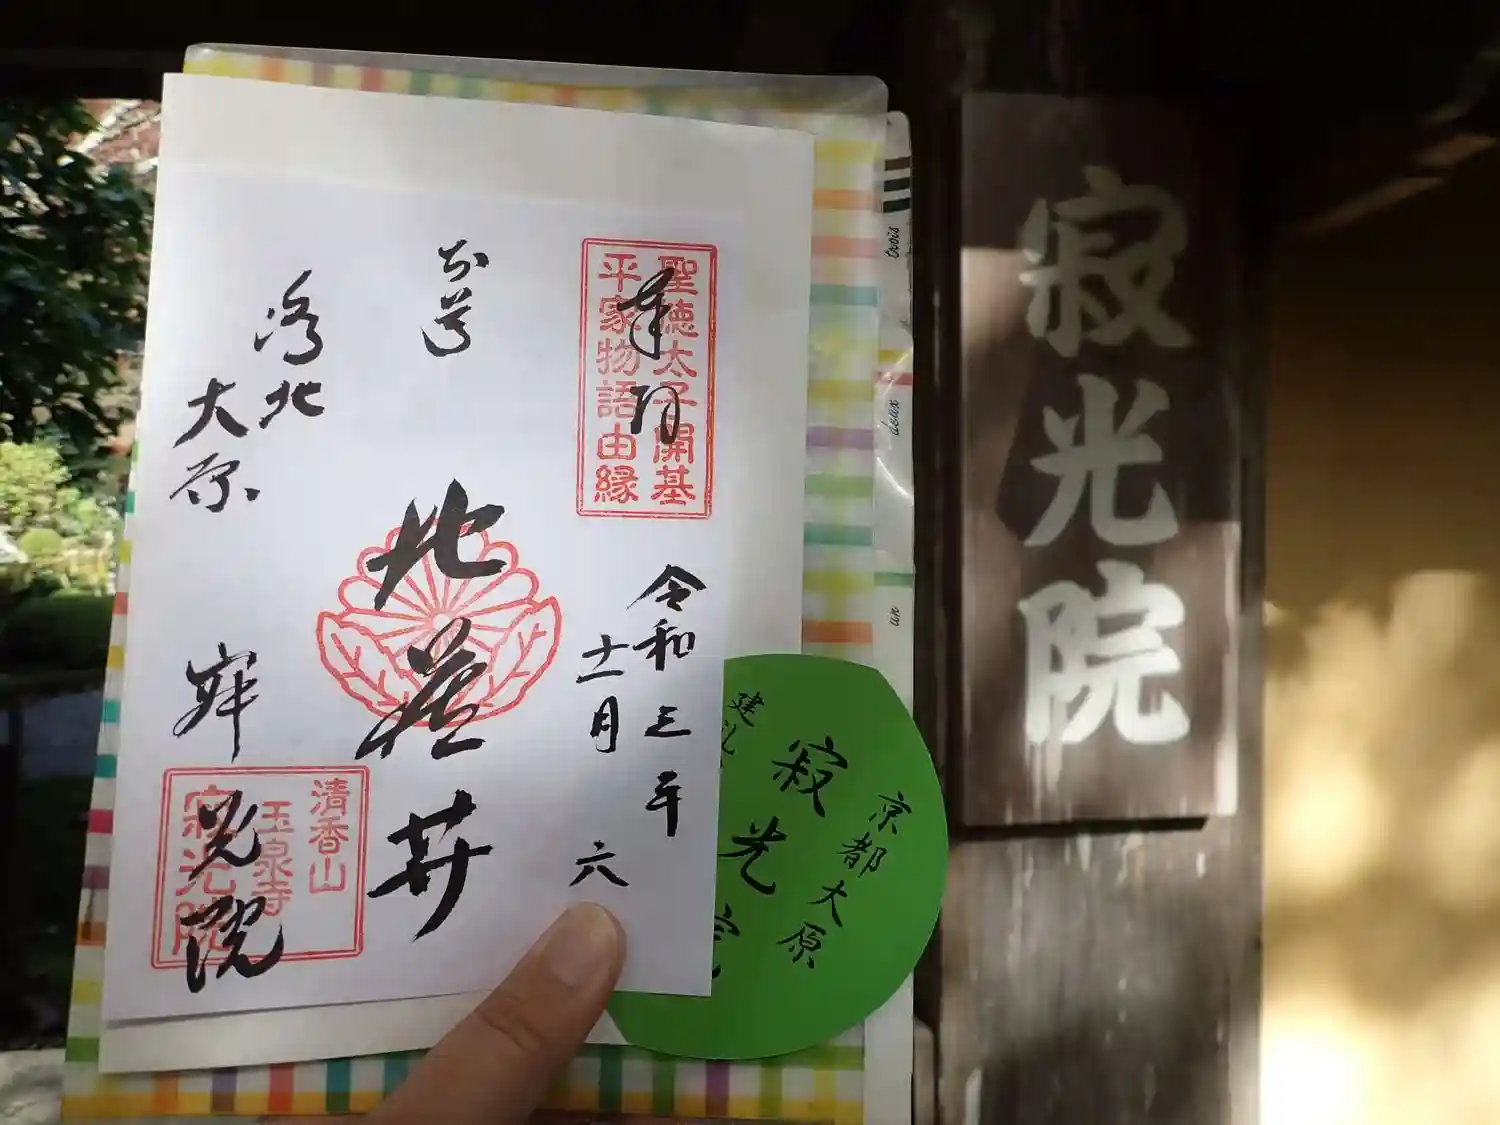 奉拝
聖徳太子開基
平家物語由縁
令和三年
十一月 六
地蔵尊
洛北
大原
寂光院
清香山
玉泉寺
寂光院
京都大原
寂光院
建礼
寂光院
trois
deux
un